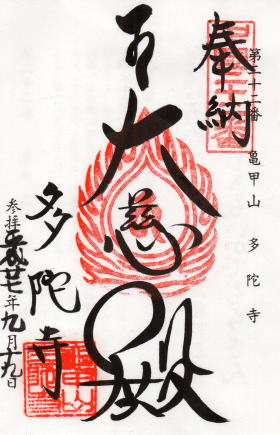 第三十二番　亀甲山　多陀寺
奉納
大慈殿
多陀寺
参拝　年九月十九日